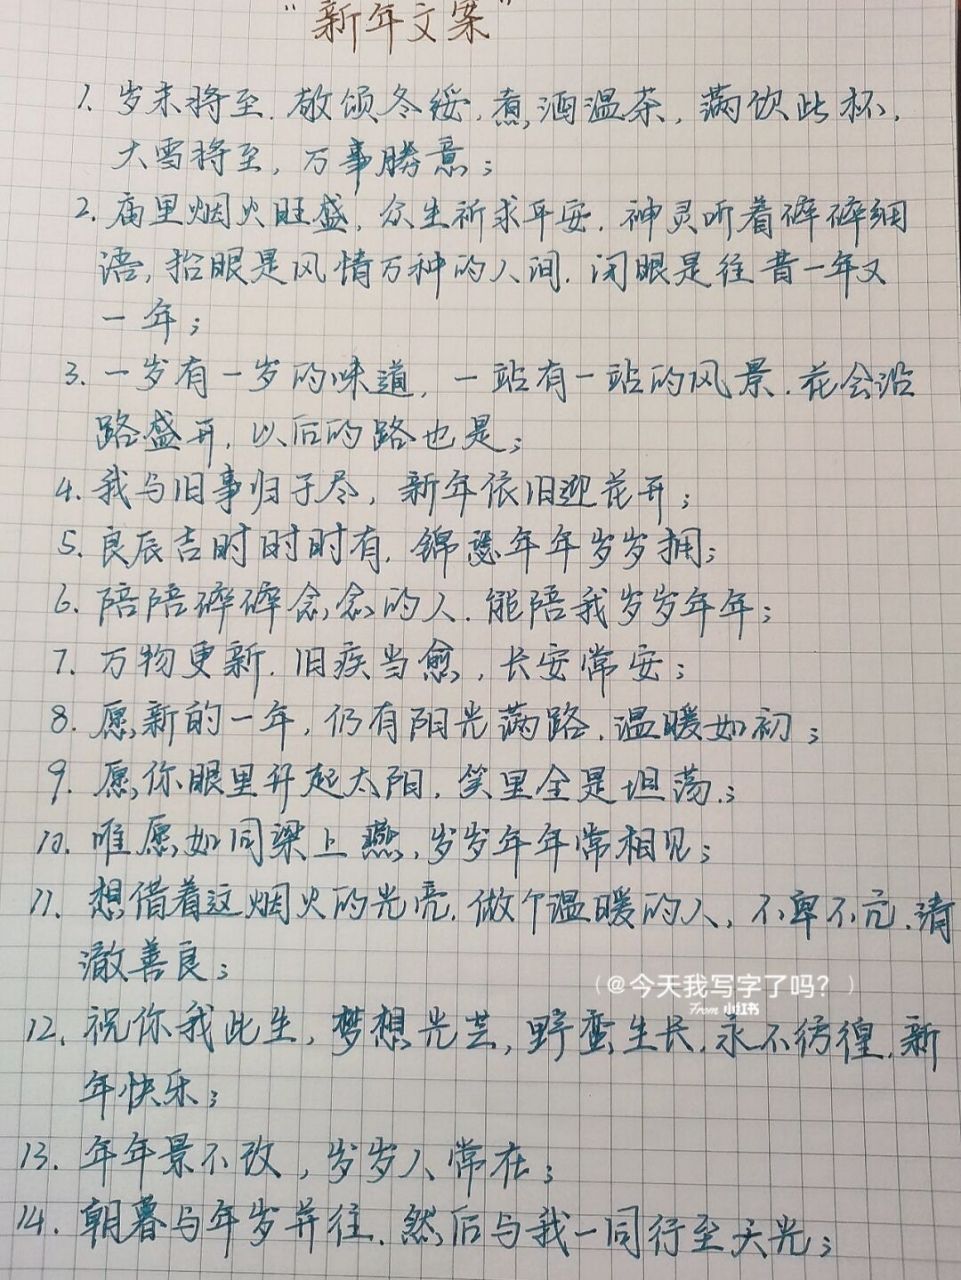 "新年文案"
1. 岁末将至,敬颂冬绥,煮酒温茶,满饮此杯,
大雪将至,万事勝意;
2. 庙里烟火旺盛,众生祈求平安,神灵听着碎碎细
语,抬眼是风情万种的人间,闭眼是往昔一年又
一年;
3. 一岁有一岁的味道,一站有一站的风景,花会沿
路盛开,以后的路也是;
4. 我与旧事归于尽,新年依旧迎花开;
5. 良辰吉时时时有,锦瑟年年岁岁拥;
6. 陪陪碎碎念念的人,能陪我岁岁年年;
7. 万物更新,旧疾当愈,长安常安;
8. 愿新的一年,仍有阳光满路,温暖如初;
9. 愿你眼里升起太阳,笑里全是坦荡;
10. 唯愿如同梁上燕,岁岁年年常相见;
11. 想借着这烟火的光亮,做个温暖的人,不卑不亢,清
澈善良;
(@今天我写字了吗?)
From 小红书
12. 祝你我此生,梦想光芒,野蛮生长,永不彷徨,新
年快乐;
13. 年年景不改,岁岁人常在;
14. 朝暮与年岁并往,然后与我一同行至天光;